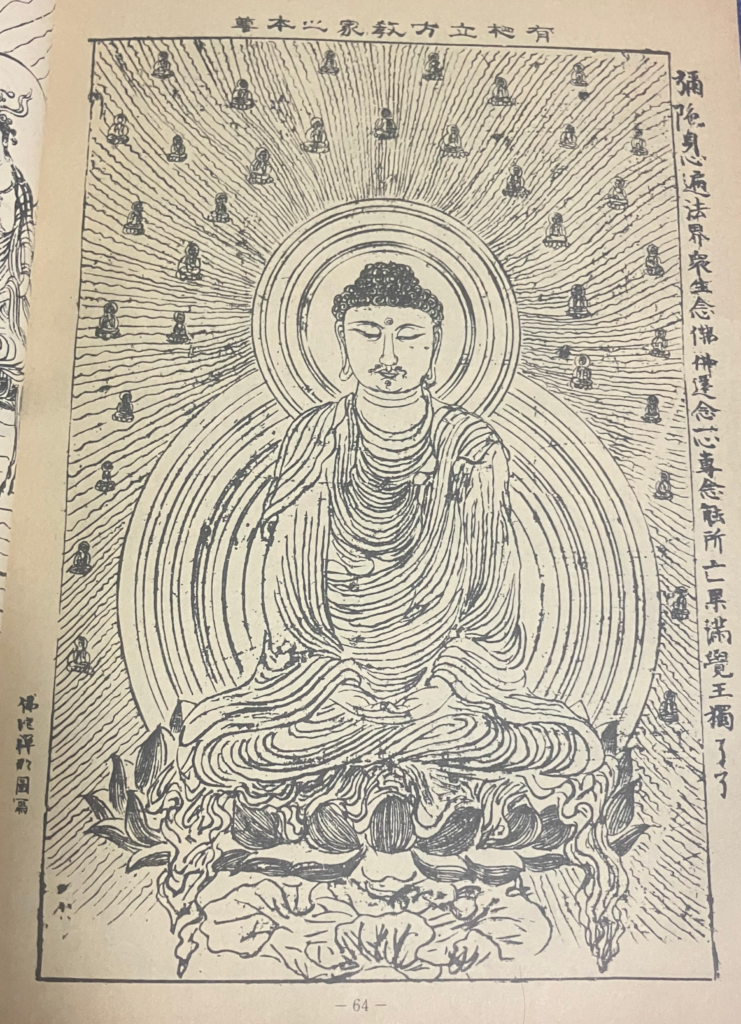 有相立方教家之本尊
彌陀身心遍法界眾生念佛佛還念一心專念能所亡果滿覺王獨了了
佛陀禪那圖寫
－64－